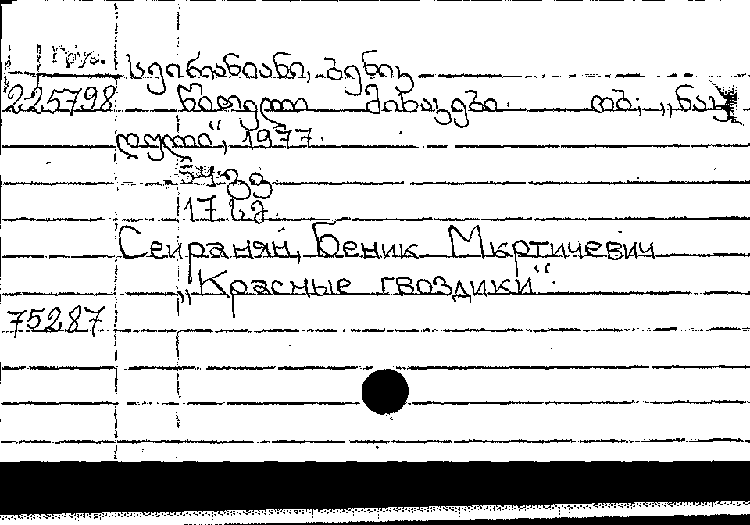 Груз.
სეირანიანი, ბენიკ
225798 წითელი მიხაკები. თბ; „ნაკ
დული“, 1977.
54 გვ
17 სმ.
Сейранян, Беник Мкртичевич
„Красные гвоздики“.
75287